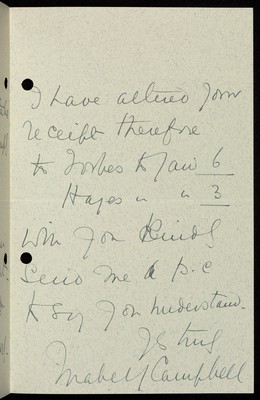 I have altered your
receipt therefore
to Forbes to pair 6
Hayes " " 3
Will you kindly
send me a p.c
to say you understand.
Yrs truly
Mabel Campbell